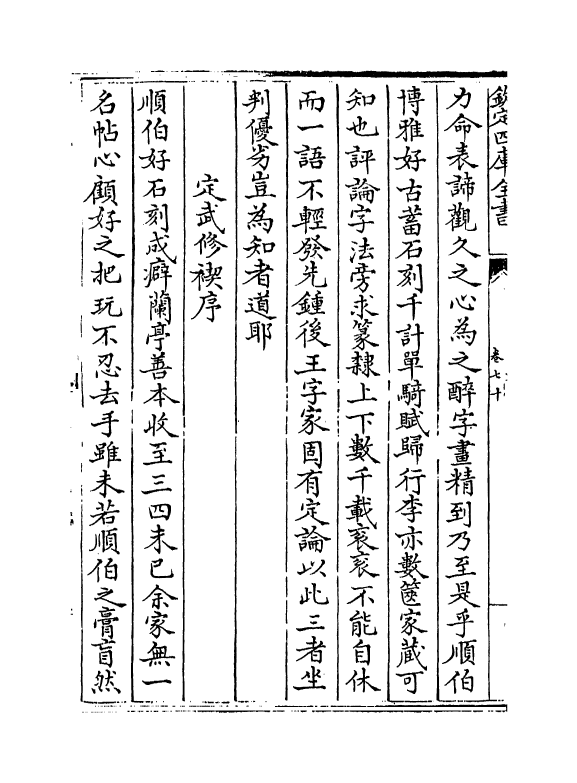 欽定四庫全書
卷七十
力命表諦觀久之心為之醉字畫精到乃至是乎順伯
博雅好古蓄石刻千計單騎賦歸行李亦數篋家藏可
知也評論字法旁求篆隸上下數千載袞袞不能自休
而一語不輕發先鍾後王字家固有定論以此三者坐
判優劣豈為知者道耶
定武修禊序
順伯好石刻成癖蘭亭善本收至三四未已余家無一
名帖心顧好之把玩不忍去手雖未若順伯之膏肓然